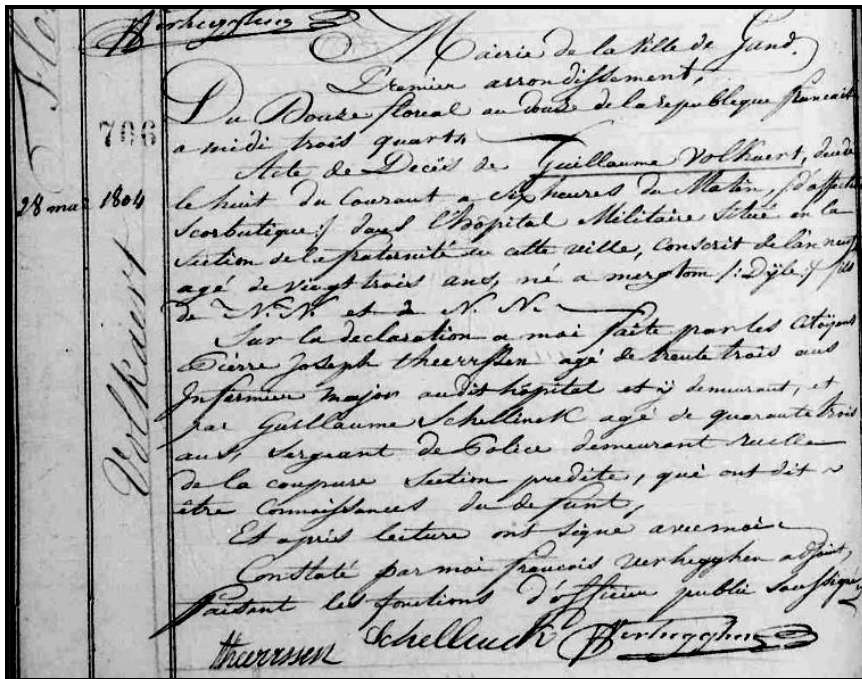 Verhegghen
Mairie de la Ville de Gand.
Premier arrondissement,
Du Douze floreal an douze de la republeque francaise
706
a midi trois quarts
Acte de Decès de Guillaume Volkaert, decedé
28 mai 1804
le huit du Courant a Six heures du Matin, /: d'affection
Scorbutique :/ dans l'hôpital Militaire Situé en la
Section de la fraternité de cette ville, Conscrit de l'an neuf
agé de vingt trois ans, né a merglom /: Dyle :/ fils
de N. N. et de N. N.
Sur la declaration a moi faite par les Citoÿens
Pierre Joseph theerssen agé de trente trois ans
Infermier major audit hôpital et y demeurant, et
par Guillaume Schellinck agé de quarante trois
ans, Sergeant de Police demeurant ruelle
de la coupure Section predite, qui ont dit
être Connaissances du defunt,
Et après lecture ont Signé avec moi
Constaté par moi francois verhegghen adjoint
faisant les fonctions d'officier public Soussigné
theerssen Schellinck Verhegghen
Volkaert
Flo